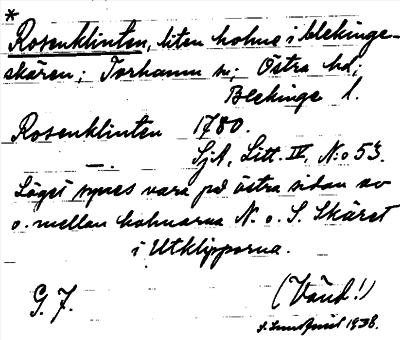 *
Rosenklinten, liten holme i blekinge-
skären; Torhamn sn; Östra hd;
Blekinge l.
Rosenklinten 1780.
SjA, Litt. IV, N:o 53.
Läget synes vara på östra sidan av
o. mellan holmarna N. o. S. Skäret
i Utklipporna.
G. F. (Vänd!)
1938.